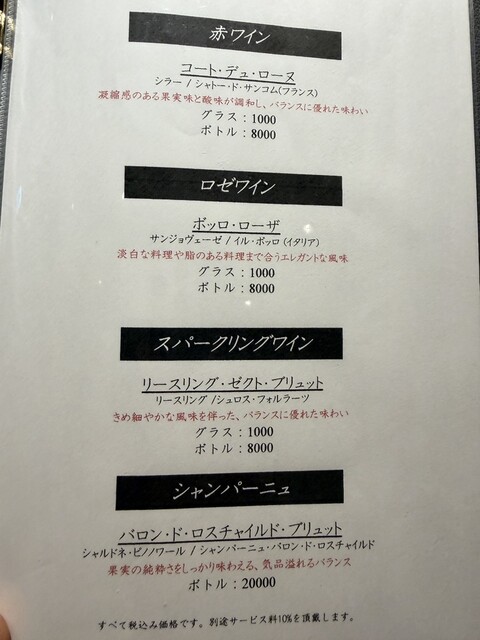 赤ワイン
コート・デュ・ローヌ
シラー / シャトー・ド・サンコム(フランス)
凝縮感のある果実味と酸味が調和し、バランスに優れた味わい
グラス：1000
ボトル：8000
ロゼワイン
ボッロ・ローザ
サンジョヴェーゼ / イル・ボッロ (イタリア)
淡白な料理や脂のある料理まで合うエレガントな風味
グラス：1000
ボトル：8000
スパークリングワイン
リースリング・ゼクト・ブリュット
リースリング /シュロス・フォルラーツ
きめ細やかな風味を伴った、バランスに優れた味わい
グラス：1000
ボトル：8000
シャンパーニュ
バロン・ド・ロスチャイルド・ブリュット
シャルドネ・ピノノワール / シャンパーニュ・バロン・ド・ロスチャイルド
果実の純粋さをしっかり味わえる、気品溢れるバランス
ボトル：20000
すべて税込み価格です。別途サービス料10%を頂戴します。